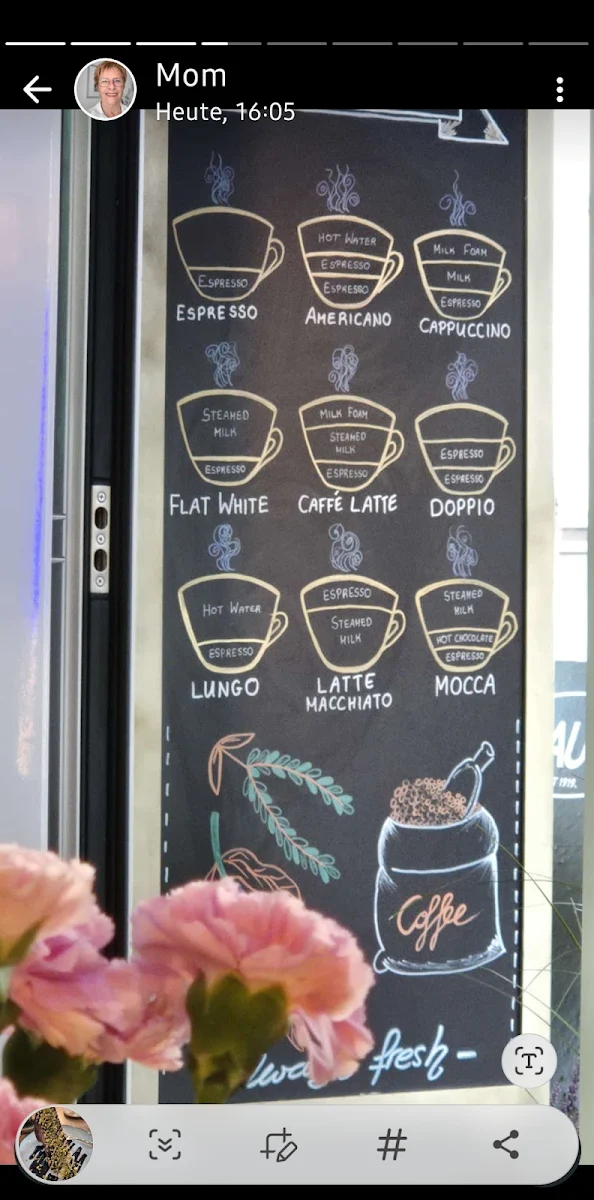 Mom
Heute, 16:05
ESPRESSO
ESPRESSO
HOT WATER
ESPRESSO
ESPRESSO
AMERICANO
MILK FOAM
MILK
ESPRESSO
CAPPUCCINO
STEAMED
MILK
ESPRESSO
FLAT WHITE
MILK FOAM
STEAMED
MILK
ESPRESSO
CAFFÉ LATTE
ESPRESSO
ESPRESSO
DOPPIO
HOT WATER
ESPRESSO
LUNGO
ESPRESSO
STEAMED
MILK
LATTE
MACCHIATO
STEAMED
MILK
HOT CHOCOLATE
ESPRESSO
MOCCA
Coffee
fresh -
T